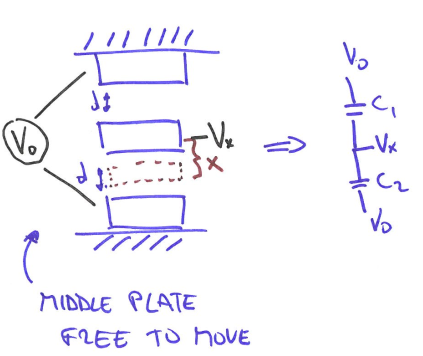 V₀
d
Vₓ
d
x
V₀
⇒
V₀
C₁
Vₓ
C₂
V₀
MIDDLE PLATE
FREE TO MOVE